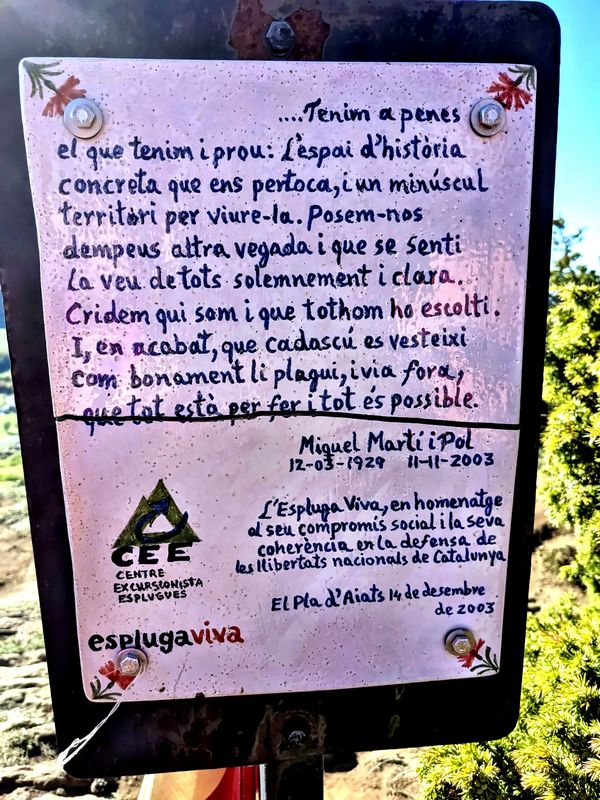 ....Tenim a penes
el que tenim i prou: L'espai d'història
concreta que ens pertoca, i un minúscul
territòri per viure-la. Posem-nos
dempeus altra vegada i que se senti
la veu de tots solemnement i clara.
Cridem qui som i que tothom ho escolti.
I, en acabat, que cadascú es vesteixi
com bonament li plagui, i via fora,
que tot està per fer i tot és possible.
Miquel Martí i Pol
12-03-1929 11-11-2003
L'Espluga Viva, en homenatge
al seu compromís social i la seva
coherència en la defensa de
les llibertats nacionals de Catalunya
El Pla d'Aiats 14 de desembre
de 2003
CEE
CENTRE
EXCURSIONISTA
ESPLUGUES
esplugaviva